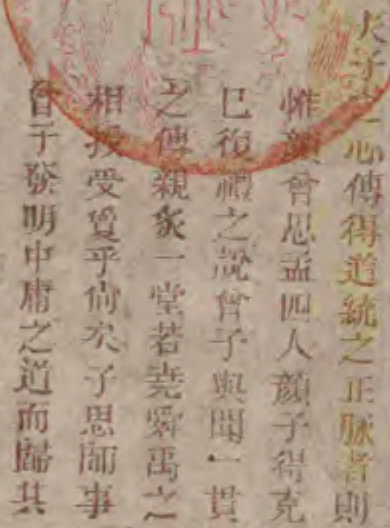 夫子之心傳得道統之正脉者則
惟顏曾思孟四人顏子得克
己復禮之說曾子與聞一貫
之傳親炙一堂若堯舜禹之
相授受寔乎尙矣子思師事
曾子發明中庸之道而歸其